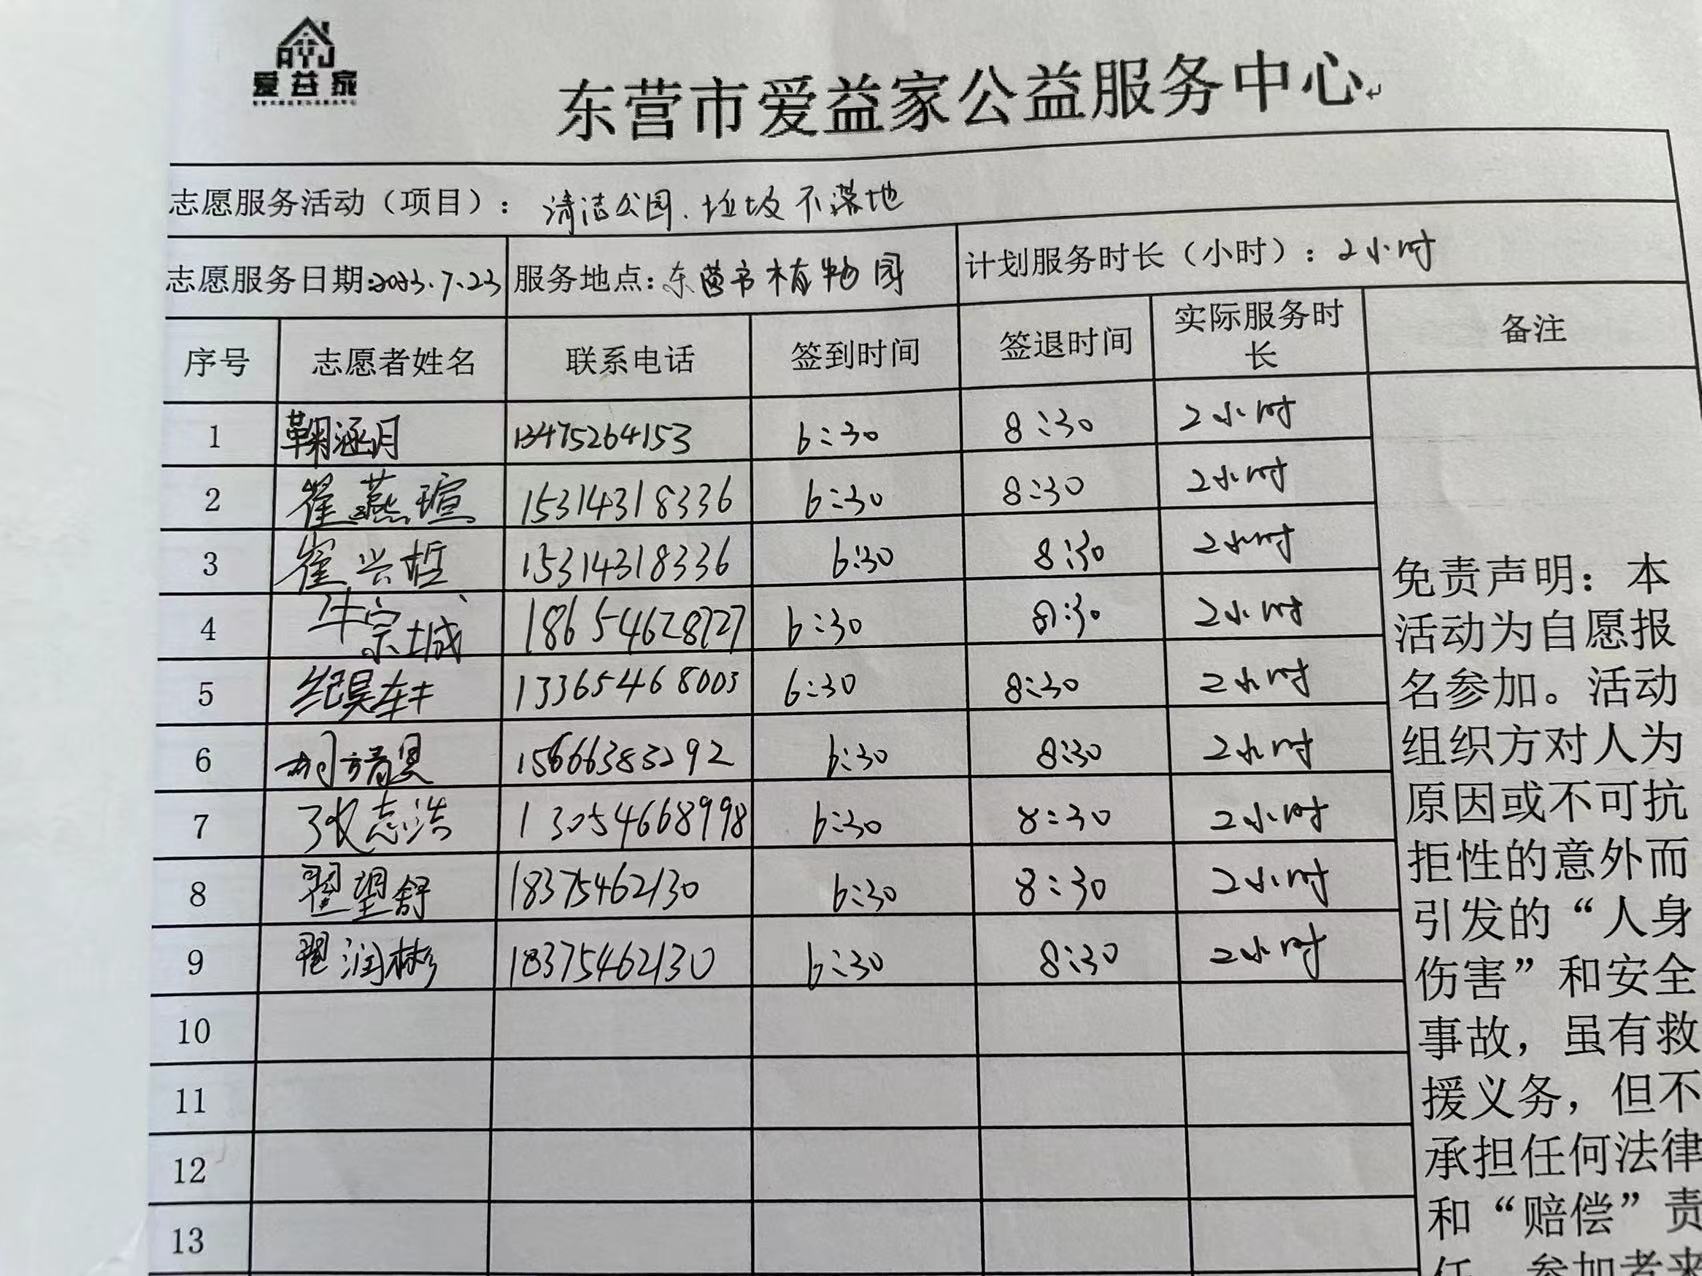 AYJ
爱益家
东营市爱益家公益服务中心
志愿服务活动（项目）：清洁公园、垃圾不落地
志愿服务日期:2023.7.23 服务地点:东营市植物园 计划服务时长（小时）：2小时
序号 志愿者姓名 联系电话 签到时间 签退时间 实际服务时长 备注
1 鞠涵月 13475264153 6:30 8:30 2小时
2 崔燕瑄 15314318336 6:30 8:30 2小时
3 崔兴哲 15314318336 6:30 8:30 2小时
4 牛宗城 18654628727 6:30 8:30 2小时
5 纪昊轩 13365468003 6:30 8:30 2小时
6 15666383292 6:30 8:30 2小时
7 张志浩 13054668998 6:30 8:30 2小时
8 翟望舒 18375462130 6:30 8:30 2小时
9 翟润彬 18375462130 6:30 8:30 2小时
10
11
12
13
免责声明：本
活动为自愿报
名参加。活动
组织方对人为
原因或不可抗
拒性的意外而
引发的“人身
伤害”和安全
事故，虽有救
援义务，但不
承担任何法律
和“赔偿”责
任，参加者来